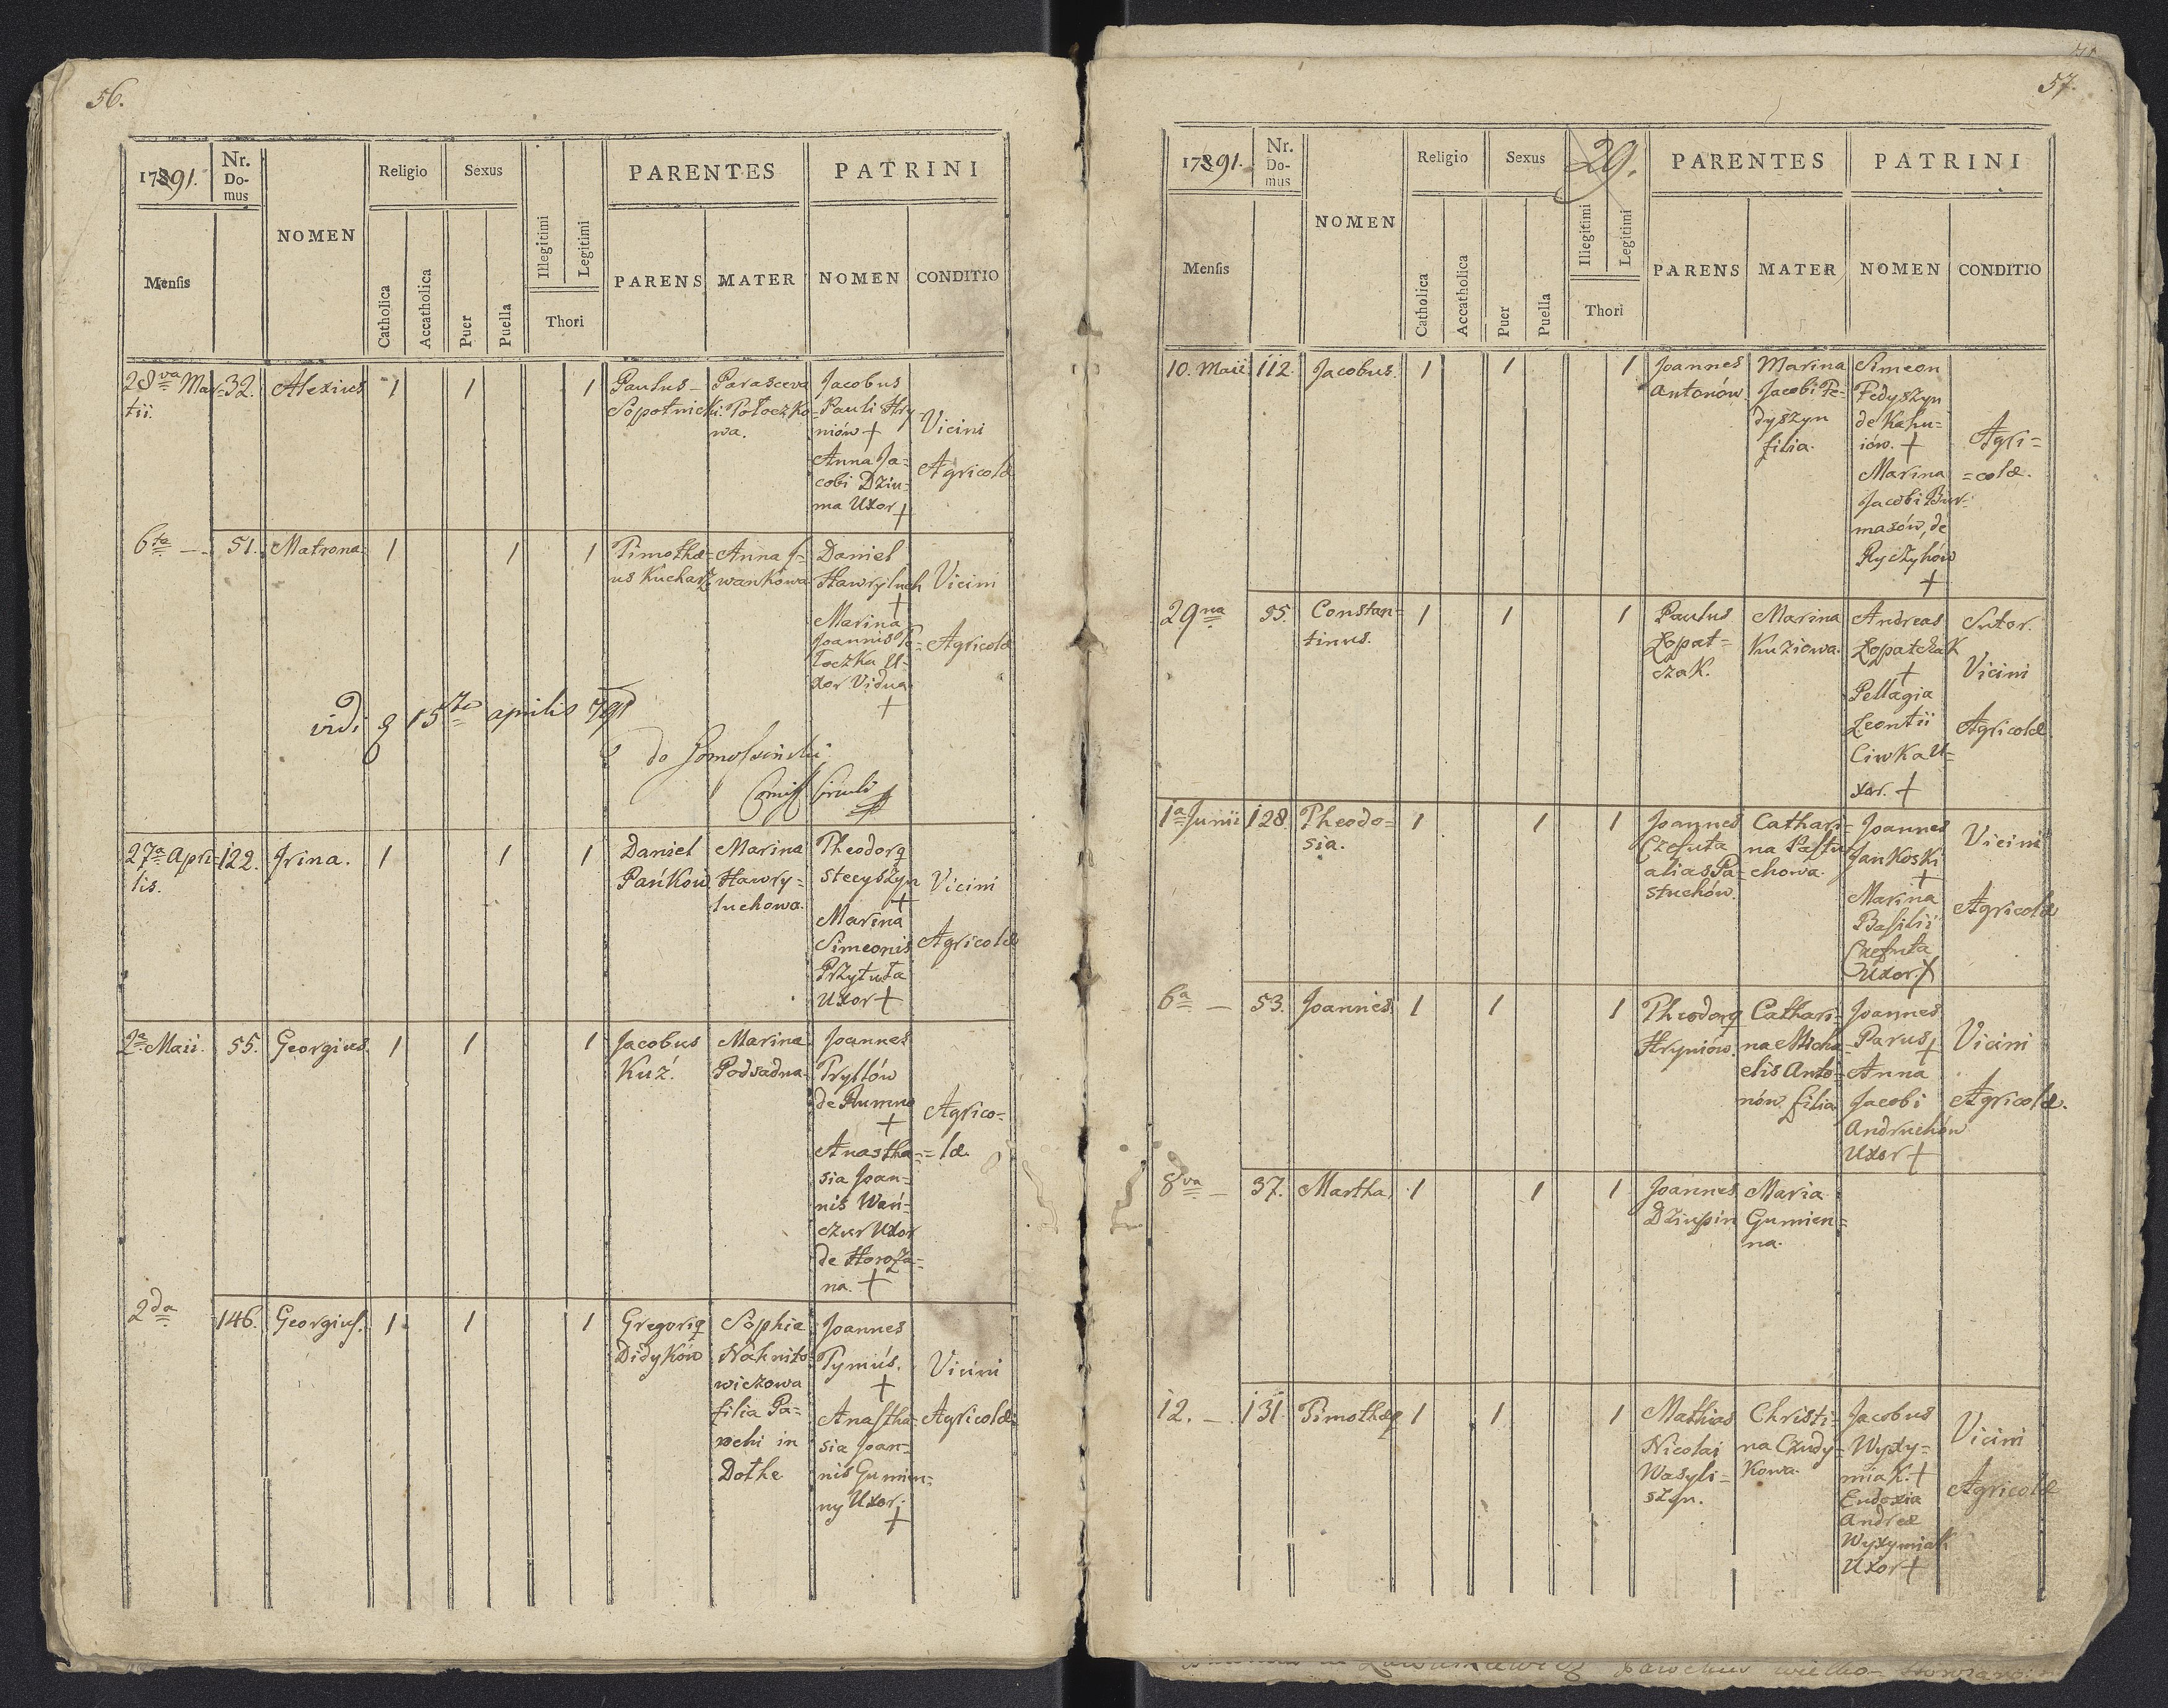 56.
1791. Nr. Domus NOMEN Religio Sexus PARENTES PATRINI
Mensis Catholica Accatholica Puer Puella Illegitimi Legitimi Thori PARENS MATER NOMEN CONDITIO
28va Mar=
tii.
32.
Alexius
1 1 1
Paulus
Sopotnicki
Parasceva
Potoczko=
wa.
Jacobus
Pauli Hry
niów +
Anna Ja=
cobi Dziu=
ma Uxor +
Vicini
Agricolæ
6ta —
51.
Matrona
1 1 1
Timothæ=
us Kucharz
Anna J=
wankowa
Daniel
Hawryluch
+
Marina
Joannis Po=
toczka U=
xor Vidua
+
Vicini
Agricolæ
vidi 15ta aprilis 791
27a Apri=
lis.
122.
Irina.
1 1 1
Daniel
Pańków
Marina
Hawry=
luchowa.
Theodorq
Stecyszyn
+
Marina
Simeonis
Przytuła
Uxor +
Vicini
Agricolæ
2a Maii.
55.
Georgius.
1 1 1
Jacobus
Kuź.
Marina
Podsadna
Joannes
Tryllów
de Rumno
+
Anastha=
sia Joan=
nis Wań=
czur Uxor
de Horoża=
na. +
Agrico=
=læ.
2da
146.
Georgius.
1 1 1
Gregoriq
Didyków
Sophia
Nahnito
wiczowa
filia Pa=
rochi in
Dołhe
Joannes
Tymiús.
+
Anastha=
sia Joan=
nis Gumien=
ny Uxor.
+
Vicini
Agricolæ
57.
29.
1791. Nr. Domus NOMEN Religio Sexus PARENTES PATRINI
Mensis Catholica Accatholica Puer Puella Illegitimi Legitimi Thori PARENS MATER NOMEN CONDITIO
10. Maii
112.
Jacobus.
1 1 1
Joannes
Antonów
Marina
Jacobi Fe=
dyszyn
filia.
Simeon
Fedyszyn
de Kahu=
iów. +
Marina
Jacobi Bur=
masów, de
Ryczyhów
+
Agri=
=colæ.
29na
55.
Constan=
tinus.
1 1 1
Paulus
Łopat=
czak.
Marina
Kuziowa.
Andreas
Łopatczak
+
Pellagia
Leontii
Ciwka U=
xor. +
Sutor.
Vicini
Agricolæ
1a Junii
128.
Theodo=
sia.
1 1 1
Joannes
Czesuta
alias Pa=
stuchów.
Cathari=
na Pastu
chowa.
Joannes
Jankoski
+
Marina
Basilii
Czesuta
Uxor. +
Vicini
Agricolæ
6a —
53.
Joannes
1 1 1
Theodorq
Hryniów.
Cathari=
na Micha=
elis Anto=
nów filia
Joannes
Parus +
Anna
Jacobi
Andruchów
Uxor +
Vicini
Agricolæ.
8va —
37.
Martha.
1 1 1
Joannes
Dziupin
Maria
Gumien=
na.
12. —
131
Timothæq
1 1 1
Mathias
Nicolai
Wasyli=
szyn.
Christi=
na Czudy=
kowa.
Jacobus
Wyxy=
miak. +
Eudoxia
Andreæ
Wyxymiak
Uxor +
Vicini
Agricolæ